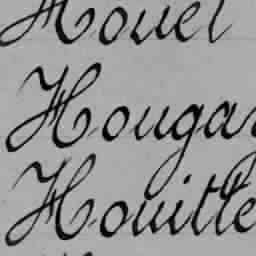 Houel
Hougar
Houitte